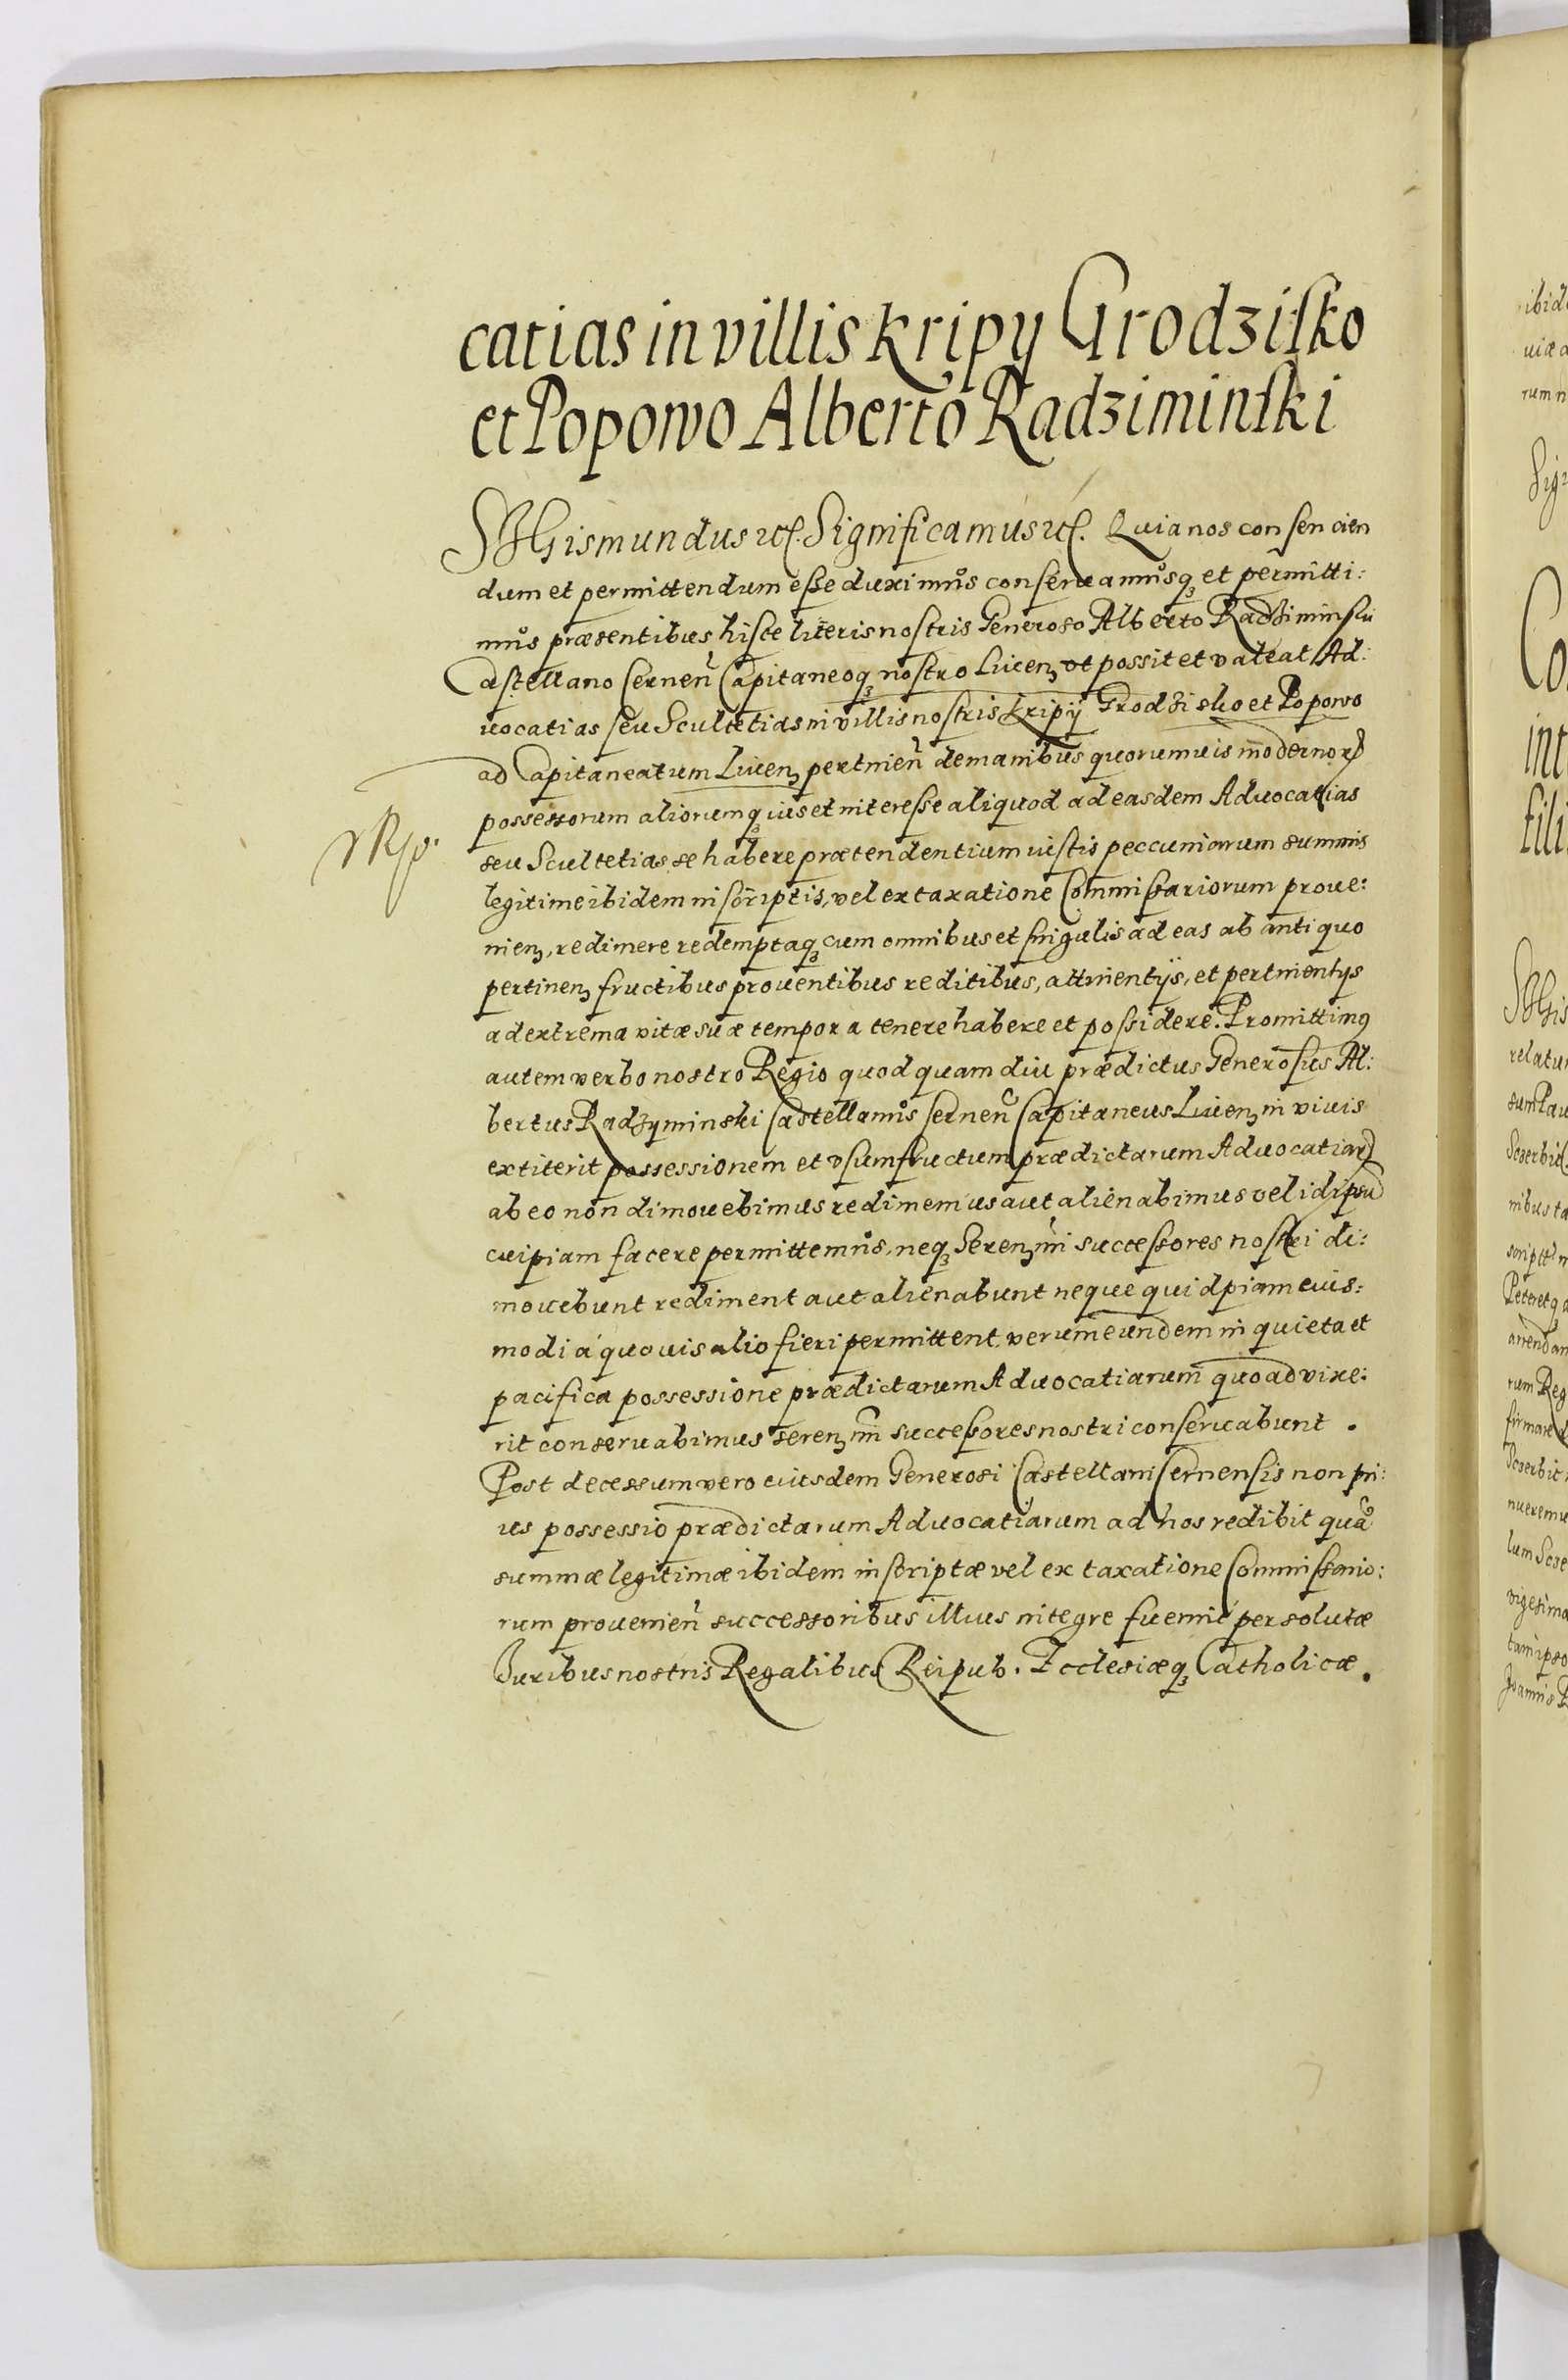 catias in villis Kripy Grodzisko
et Popowo Alberto Radziminski
SIGismundus etc. Significamus etc. Quia nos consencien
dum et permittendum esse duximus conseruamusq3 et permitti:
mus præsentibus hisce literis nostris Generoso Alberto Radziminski
Castellano Sernen Capitaneoq3 nostro Liuen3 vt possit et valeat Ad:
uocatias seu Scultetias in villis nostris Kripij Grodzisko et Popowo
ad Capitaneatum Liuen3 pertinen de manibus quorumuis modernor
possessorum aliorumq3 ius et interesse aliquod ad easdem Aduocatias
seu Scultetias se habere prætendentium iustis peccuniarum summis
legitime ibidem inscriptis, vel ex taxatione Commissariorum proue:
nien3, redimere redemptaq3 cum omnibus et singulis ad eas ab antiquo
pertinen3 fructibus prouentibus reditibus, attinentijs, et pertinentijs
ad extrema vitæ suæ tempora tenere habere et possidere. Promittimus
autem verbo nostro Regio quod quam diu prædictus Generosus Al:
bertus Radzyminski Castellanus Sernen Capitaneus Liuen3 in viuis
extiterit possessionem et vsumfructum prædictarum Aduocatiar
ab eo non dimouebimus redimemus aut alienabimus vel id ipsu
cuipiam facere permittemus, neq3 Seren3mi successores nostri di:
mouebunt rediment aut alienabunt neque quidpiam eius:
modi á quouis alio fieri permittent, verum eundem in quieta et
pacifica possessione prædictarum Aduocatiarum quoad vixe:
rit conseruabimus Seren3mi successores nostri conseruabunt.
Post decessum vero eiusdem Generosi Castellani Sernensis non pri:
us possessio prædictarum Aduocatiarum ad nos redibit qua
summæ legitimæ ibidem inscriptæ vel ex taxatione Commissario:
rum prouenien successoribus illius integre fuerint persolutæ
Iuribus nostris Regalibus Reipub. Ecclesiæq3 Catholicæ.